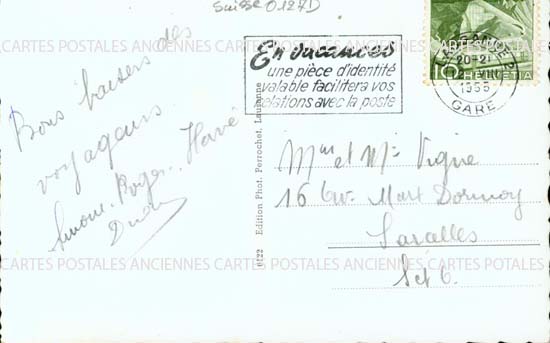 Suisse 0127D
CARTES POSTALES ANCIENNES CARTES POSTALES ANCIENNES CARTES POSTALES
En vacances
une pièce d'identité
valable facilitera vos
relations avec la poste
LAUSANNE
20-21
VIII
1955
GARE
10 HELVETIA
Bons baisers des
voyageurs
Simone. Roger. Hervé
6122 Edition Phot. Perrochet, Lausanne
Mme et Mr Vigne
16 Av. Marx Dormoy
CARTES POSTALES ANCIENNES CARTES POSTALES ANCIENNES CARTES POSTALES